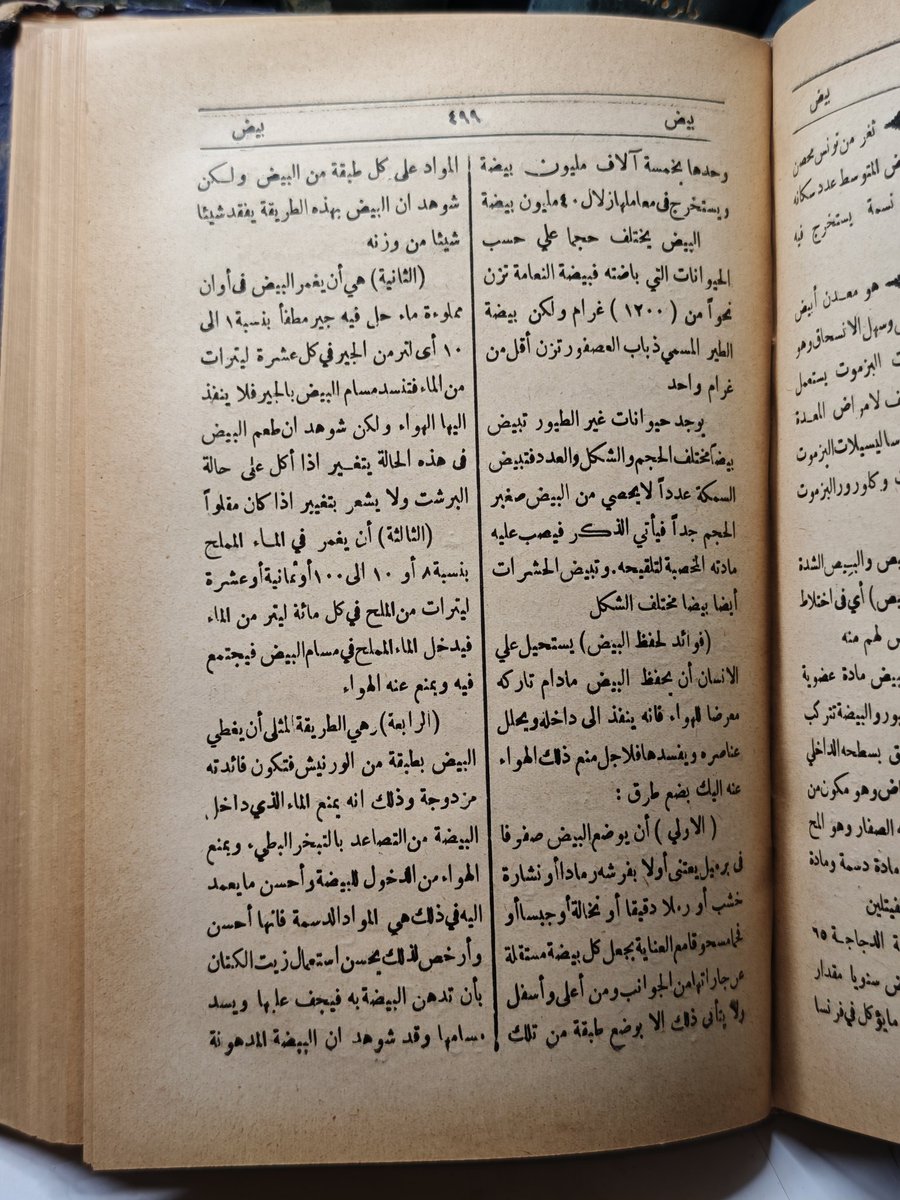 بيض
٤٩٩
بيض
وحدها بخمسة آلاف مليون بيضة
ويستخرج في معاملها زلال ٤٠ مليون بيضة
البيض يختلف حجما علي حسب
الحيوانات التي باضته فبيضة النعامة تزن
نحواً من ( ١٢٠٠ ) غرام ولكن بيضة
الطير المسمي ذباب العصفور تزن أقل من
غرام واحد
يوجد حيوانات غير الطيور تبيض
بيضاً مختلف الحجم والشكل والعدد فتبيض
السمكة عدداً لا يحصي من البيض صغير
الحجم جداً فيأتي الذكر فيصب عليه
مادته المخصبة لتلقيحه. وتبيض الحشرات
أيضا بيضا مختلف الشكل
(فوائد لحفظ البيض) يستحيل علي
الانسان أن يحفظ البيض مادام تاركه
معرضا للهواء فانه ينفذ الى داخله ويحلل
عناصره ويفسدها فلاجل منع ذلك الهواء
عنه اليك بضع طارق :
( الاولي ) أن يوضع البيض صفوفا
فى برميل يعتنى أولا بفرشه رمادا أو نشارة
خشب أو رملا دقيقا أو نخالة أو جبسا أو
فحما مسحوقا مع العناية بجعل كل بيضة مستقلة
عن جاراتها من الجوانب ومن أعلى وأسفل
ولا يتأتى ذلك إلا بوضع طبقة من تلك
المواد على كل طبقة من البيض ولكن
شوهد ان البيض بهذه الطريقة يفقد شيئا
شيئا من وزنه
(الثانية) هي أن يغمر البيض فى أوان
مملوءة ماء حل فيه جير مطفأ بنسبة ١ الى
١٠ أى لتر من الجير في كل عشرة ليترات
من الماء فتنسد مسام البيض بالجير فلا ينفذ
اليها الهواء ولكن شوهد ان طعم البيض
فى هذه الحالة يتغير اذا أكل على حالة
البرشت ولا يشعر بتغيير اذا كان مقلواً
(الثالثة) أن يغمر في الماء المملح
بنسبة ٨ أو ١٠ الى ١٠٠ أو ثمانية أو عشرة
ليترات من الملح في كل مائة ليتر من الماء
فيدخل الماء المملح في مسام البيض فيجتمع
فيه ويمنع عنه الهواء
(الرابعة) وهي الطريقة المثلى أن يغطي
البيض بطبقة من الورنيش فتكون فائدته
مزدوجة وذلك انه يمنع الماء الذي داخل
البيضة من التصاعد بالتبخر البطيء ويمنع
الهواء من الدخول للبيضة وأحسن ما يعمد
اليه في ذلك هي المواد الدسمة فانها أحسن
وأرخص لذلك يحسن استعمال زيت الكتان
بأن تدهن البيضة به فيجف عليها ويسد
مسامها وقد شوهد ان البيضة المدهونة
بيض
ثغر من تونس محصن
المتوسط عدد سكانه
نسمة يستخرج فيه
هو معدن أبيض
وسهل الانسحاق وهو
البزموت يستعمل
لامراض المعدة
البزموت
وكلورور البزموت
والبيص الشدة
أي فى اختلاط
لهم منه
مادة عضوية
والبيضة تتركب
بسطحه الداخلي
وهو مكون من
الصفار وهو المح
مادة دسمة ومادة
الدجاجة ٦٥
سنويا مقدار
ما يؤكل في فرنسا